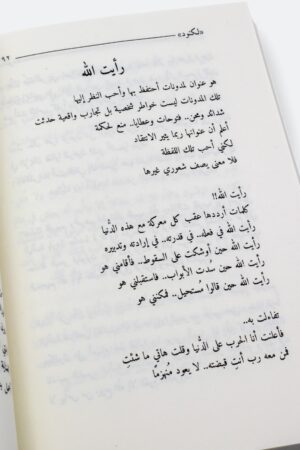 «لكنود»
٩٢
رأيت الله
هو عنوان لمدونات أحتفظ بها وأحب النظر إليها
تلك المدونات ليست خواطر شخصية بل تجارب واقعية حدثت
شدائد ومحن.. فتوحات وعطايا.. منع لحكمة
أعلم أن عنوانها ربما يثير الانتقاد
لكني أحب تلك اللفظة
فلا معنى يصف شعوري غيرها
رأيت الله!!
كلمات أرددها عقب كل معركة مع هذه الدُّنيا
رأيت الله في فعله.. في قدرته.. في إرادته وتدبيره
رأيت الله حين أوشكت على السقوط.. فأقامني هو
رأيت الله حين سدت الأبواب.. فاستقبلني هو
رأيت الله حين قالوا مُستحيل.. فكنني هو
تفاءلت به..
فأعلنت أنا الحرب على الدُّنيا وقلت هاتي ما شئتِ
فمن معه رب أنتِ قبضته.. لا يعود مُنهزمًا